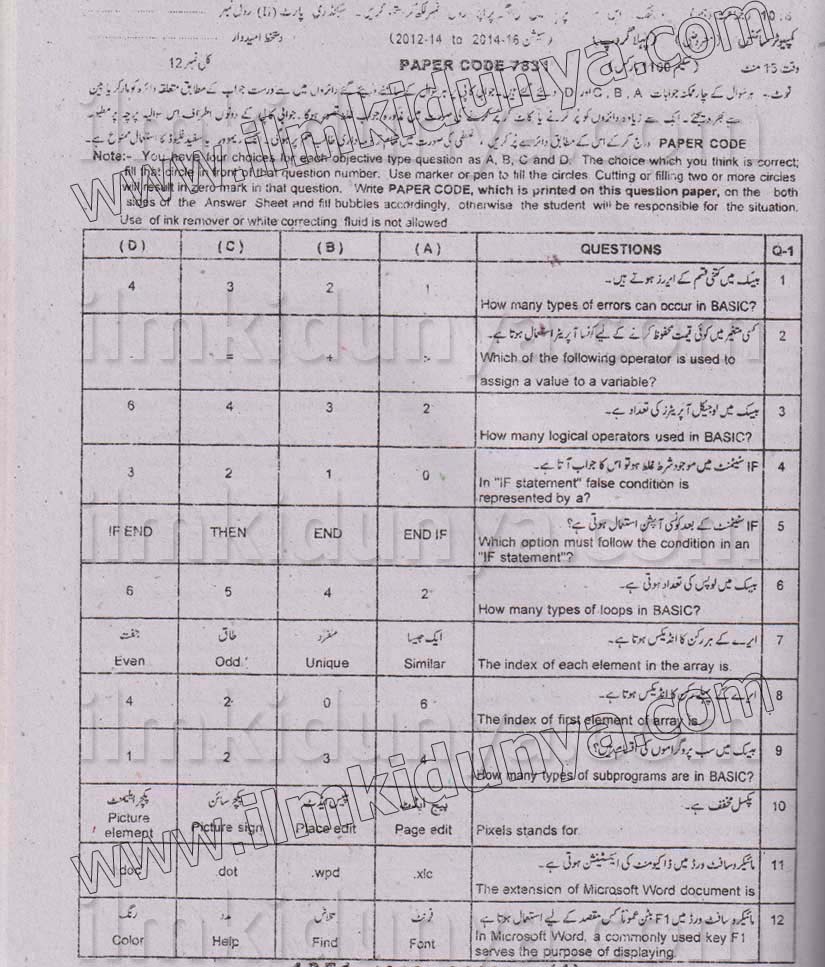 2012-14 to 2014-16
کل نمبر 12 PAPER CODE 7831 وقت 15 منٹ
PAPER CODE
Note:- You have four choices for each objective type question as A, B, C and D. The choice which you think is correct;
fill that circle in front of that question number. Use marker or pen to fill the circles. Cutting or filling two or more circles
will result in zero mark in that question. Write PAPER CODE, which is printed on this question paper, on the both
sides of the Answer Sheet and fill bubbles accordingly, otherwise the student will be responsible for the situation.
Use of ink remover or white correcting fluid is not allowed
(D) (C) (B) (A) QUESTIONS Q-1
بیسک میں کتنی قسم کے ایررز ہوتے ہیں۔ 1
4 3 2 1
How many types of errors can occur in BASIC?
کسی متغیر میں کوئی قیمت محفوظ کرنے کے لیے کونسا آپریٹر استعمال ہوتا ہے۔ 2
- = + > Which of the following operator is used to
assign a value to a variable?
بیسک میں لوجیکل آپریٹرز کی تعداد ہے۔ 3
6 4 3 2
How many logical operators used in BASIC?
IF سٹیٹمنٹ میں موجود شرط غلط ہو تو اس کا جواب آتا ہے۔ 4
3 2 1 0 In "IF statement" false condition is
represented by a?
IF سٹیٹمنٹ کے بعد کونسی آپشن استعمال ہوتی ہے؟ 5
IF END THEN END END IF Which option must follow the condition in an
"IF statement"?
بیسک میں لوپس کی تعداد ہوتی ہے۔ 6
6 5 4 2
How many types of loops in BASIC?
جفت طاق منفرد ایک جیسا ایرے کے ہر رکن کا انڈیکس ہوتا ہے۔ 7
Even Odd Unique Similar The index of each element in the array is.
ایرے کے پہلے رکن کا انڈیکس ہوتا ہے۔ 8
4 2 0 6
The index of first element of array is
بیسک میں سب پروگراموں کی اقسام ہیں؟ 9
1 2 3 4
How many types of subprograms are in BASIC?
پکچر ایلیمنٹ پکچر سائن پلیس ایڈیٹ پیج ایڈٹ پکسل مخفف ہے۔ 10
Picture element Picture sign Place edit Page edit Pixels stands for.
مائیکروسافٹ ورڈ میں ڈاکیومنٹ کی ایکسٹینشن ہوتی ہے۔ 11
.doc .dot .wpd .xlc
The extension of Microsoft Word document is
رنگ مدد تلاش فونٹ مائیکروسافٹ ورڈ میں F1 بٹن عموماً کس مقصد کے لیے استعمال ہوتا ہے 12
Color Help Find Font In Microsoft Word, a commonly used key F1
serves the purpose of displaying.
www.ilmkidunya.com
ilmkidunya.com